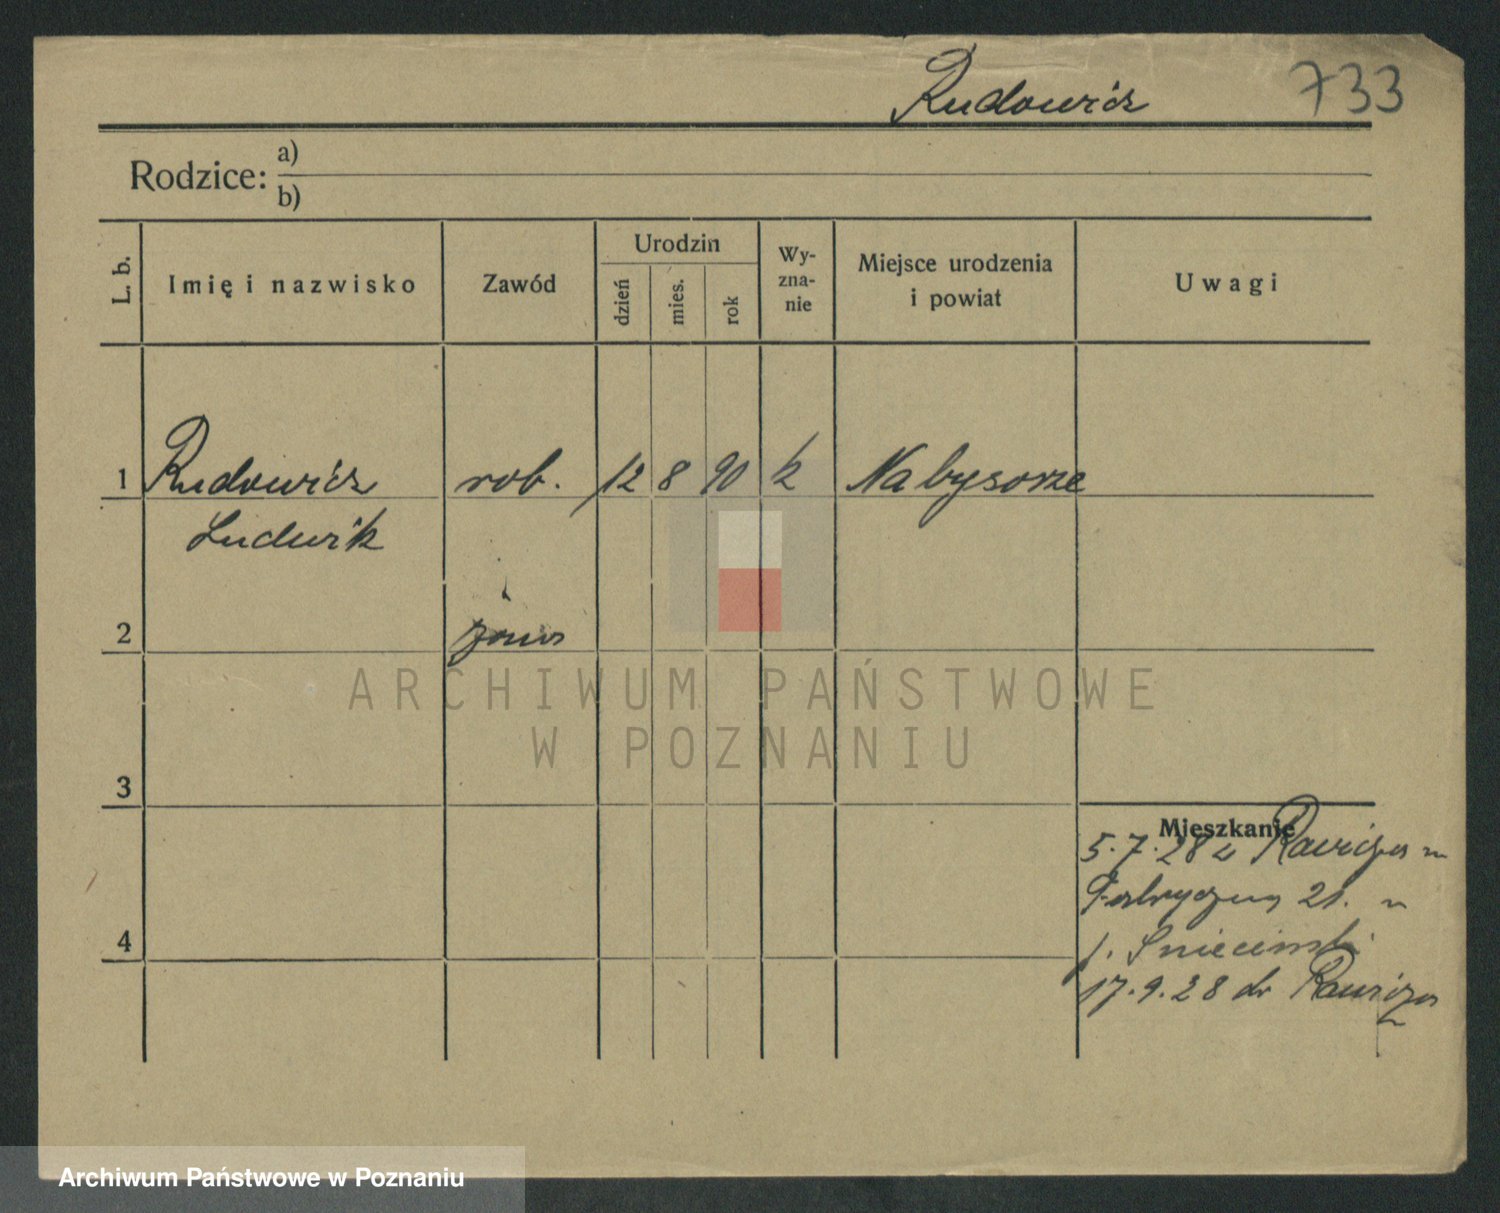 Rudowicz 733
Rodzice: a)
b)
L. b. Imię i nazwisko Zawód Urodzin dzień mies. rok Wy-zna-nie Miejsce urodzenia i powiat Uwagi
1 Rudowicz rob. 12 8 90 k Nabysorze
Ludwik
2
ARCHIWUM PAŃSTWOWE
W POZNANIU
3
Mieszkanie
5.7.28 z Rawicza
Fabryczna 21.
4
17.9.28 do Rawicza
Archiwum Państwowe w Poznaniu